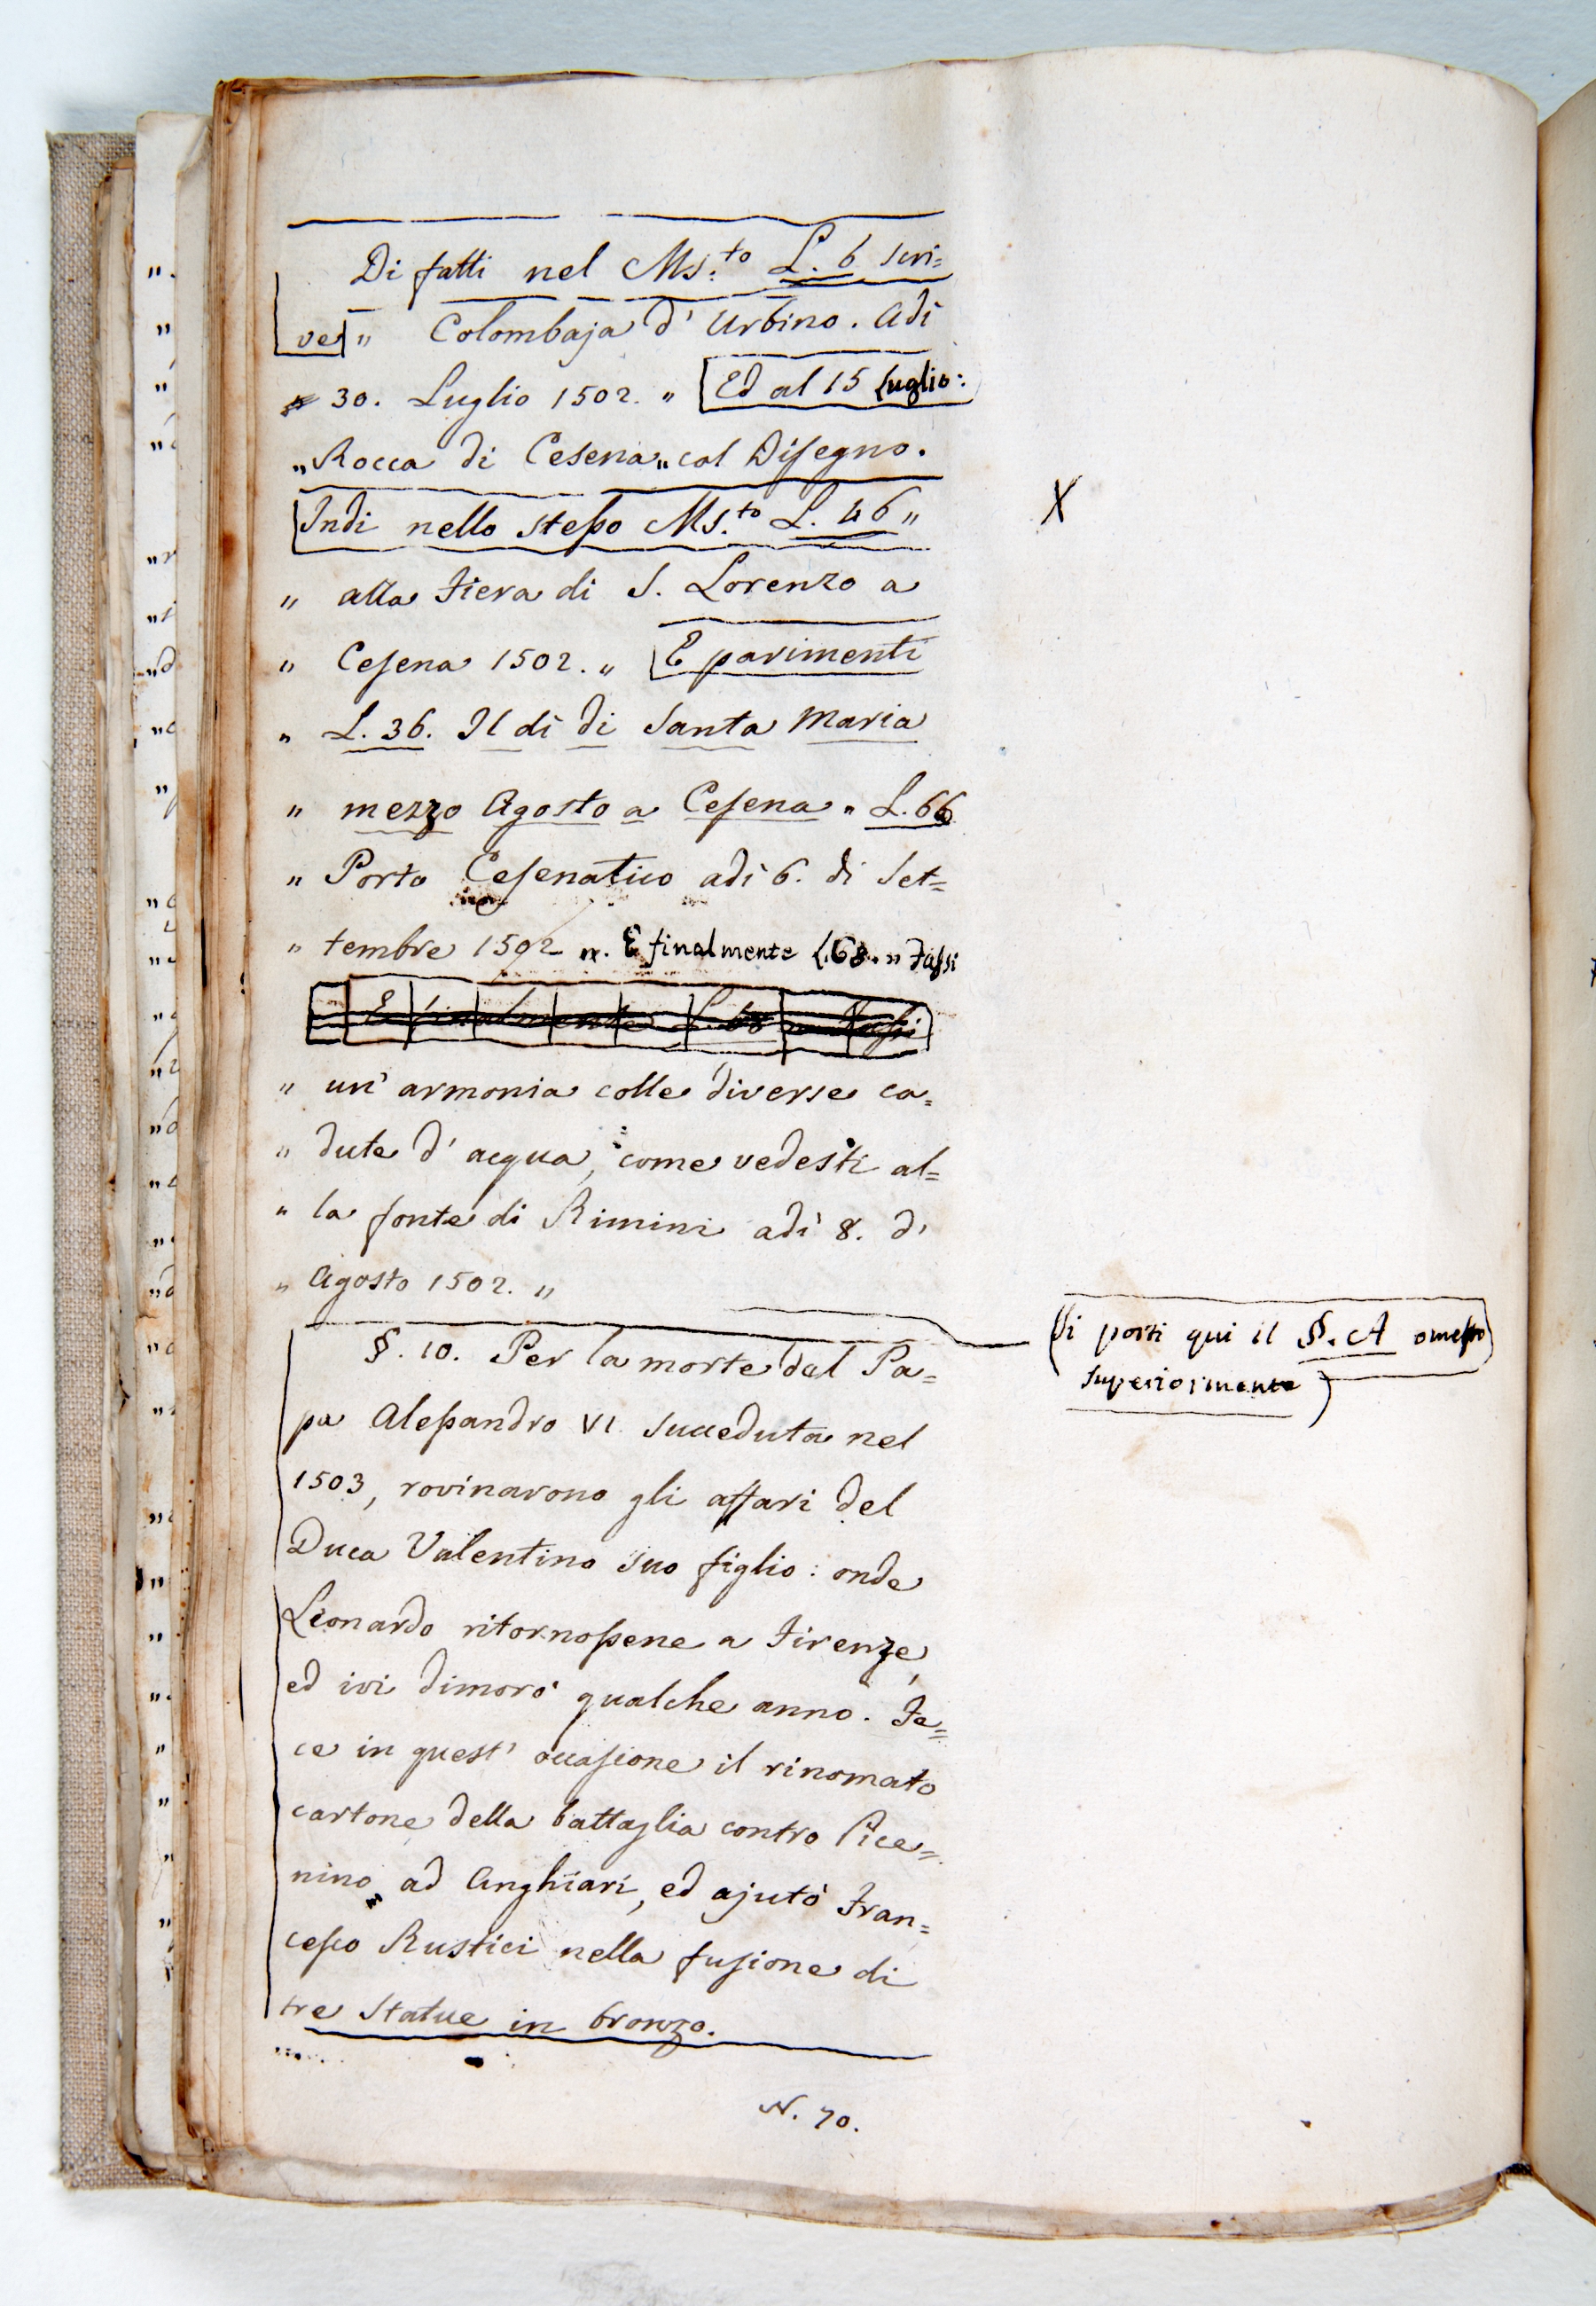 Di fatti nel Ms.to L. 6 scri=
ve „ Colombaja d' Urbino. Adì
„ 30. Luglio 1502. „ Ed al 15 Luglio:
„ Rocca di Cesena „ col Disegno.
Indi nello stesso Ms.to L. 46 „
„ alla Fiera di S. Lorenzo a
„ Cesena 1502. „ E parimenti
„ L. 36. Il dì di Santa Maria
„ mezzo Agosto a Cesena „ L. 66
„ Porto Cesenatico adì 6. di Set=
„ tembre 1502 „. E finalmente L. 68. „ Fassi
E finalmente L. 68 „ Fassi
„ un' armonia colle diverse ca=
„ dute d' acqua, come vedesti al=
„ la fonte di Rimini adì 8. d'
„ Agosto 1502. „
§. 10. Per la morte del Pa=
pa Alessandro VI succeduta nel
1503, rovinarono gli affari del
Duca Valentino suo figlio: onde
Leonardo ritornossene a Firenze,
ed ivi dimorò qualche anno. Fe=
ce in quest' occasione il rinomato
cartone della battaglia contro Pice=
nino ad Anghiari, ed ajutò Fran=
cesco Rustici nella fusione di
tre Statue in bronzo.
N. 70.
X
(Si porti qui il §. A omesso
superiormente)